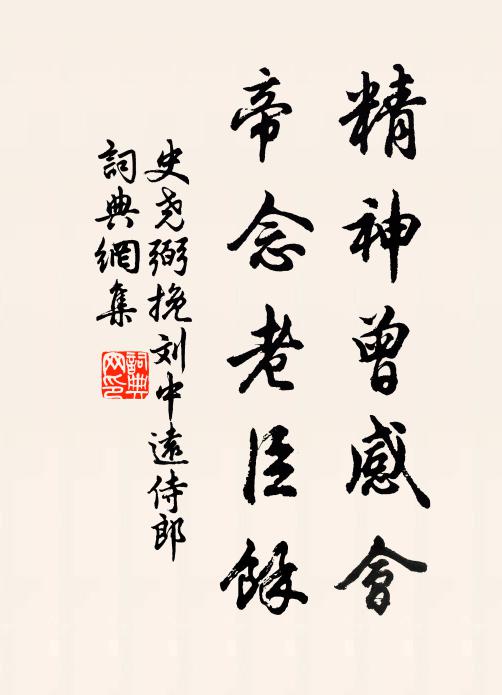 精神曾感會
帝念老臣餘
史堯弼挽刘中遠侍郎
詞典網集
詞典网印